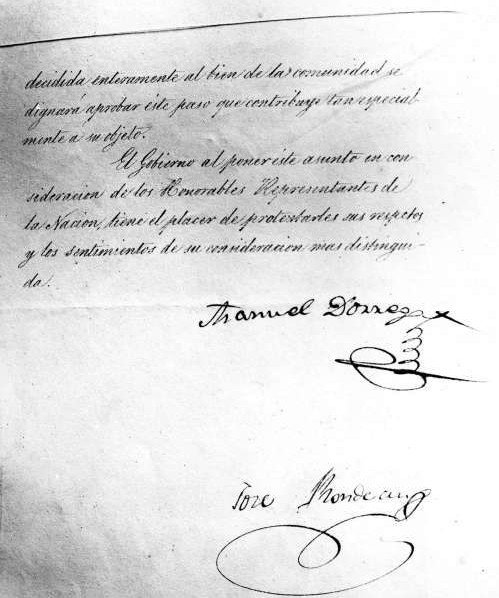 decidida enteramente al bien de la comunidad se
dignará aprobar éste paso que contribuye tan especial
mente a su objeto.
El Gobierno al poner éste asunto en con
sideracion de los Honorables Representantes de
la Nacion, tiene el placer de protestarles sus respetos
y los sentimientos de su consideracion mas distingui-
da.
Manuel Dorrego
Jose Rondeau